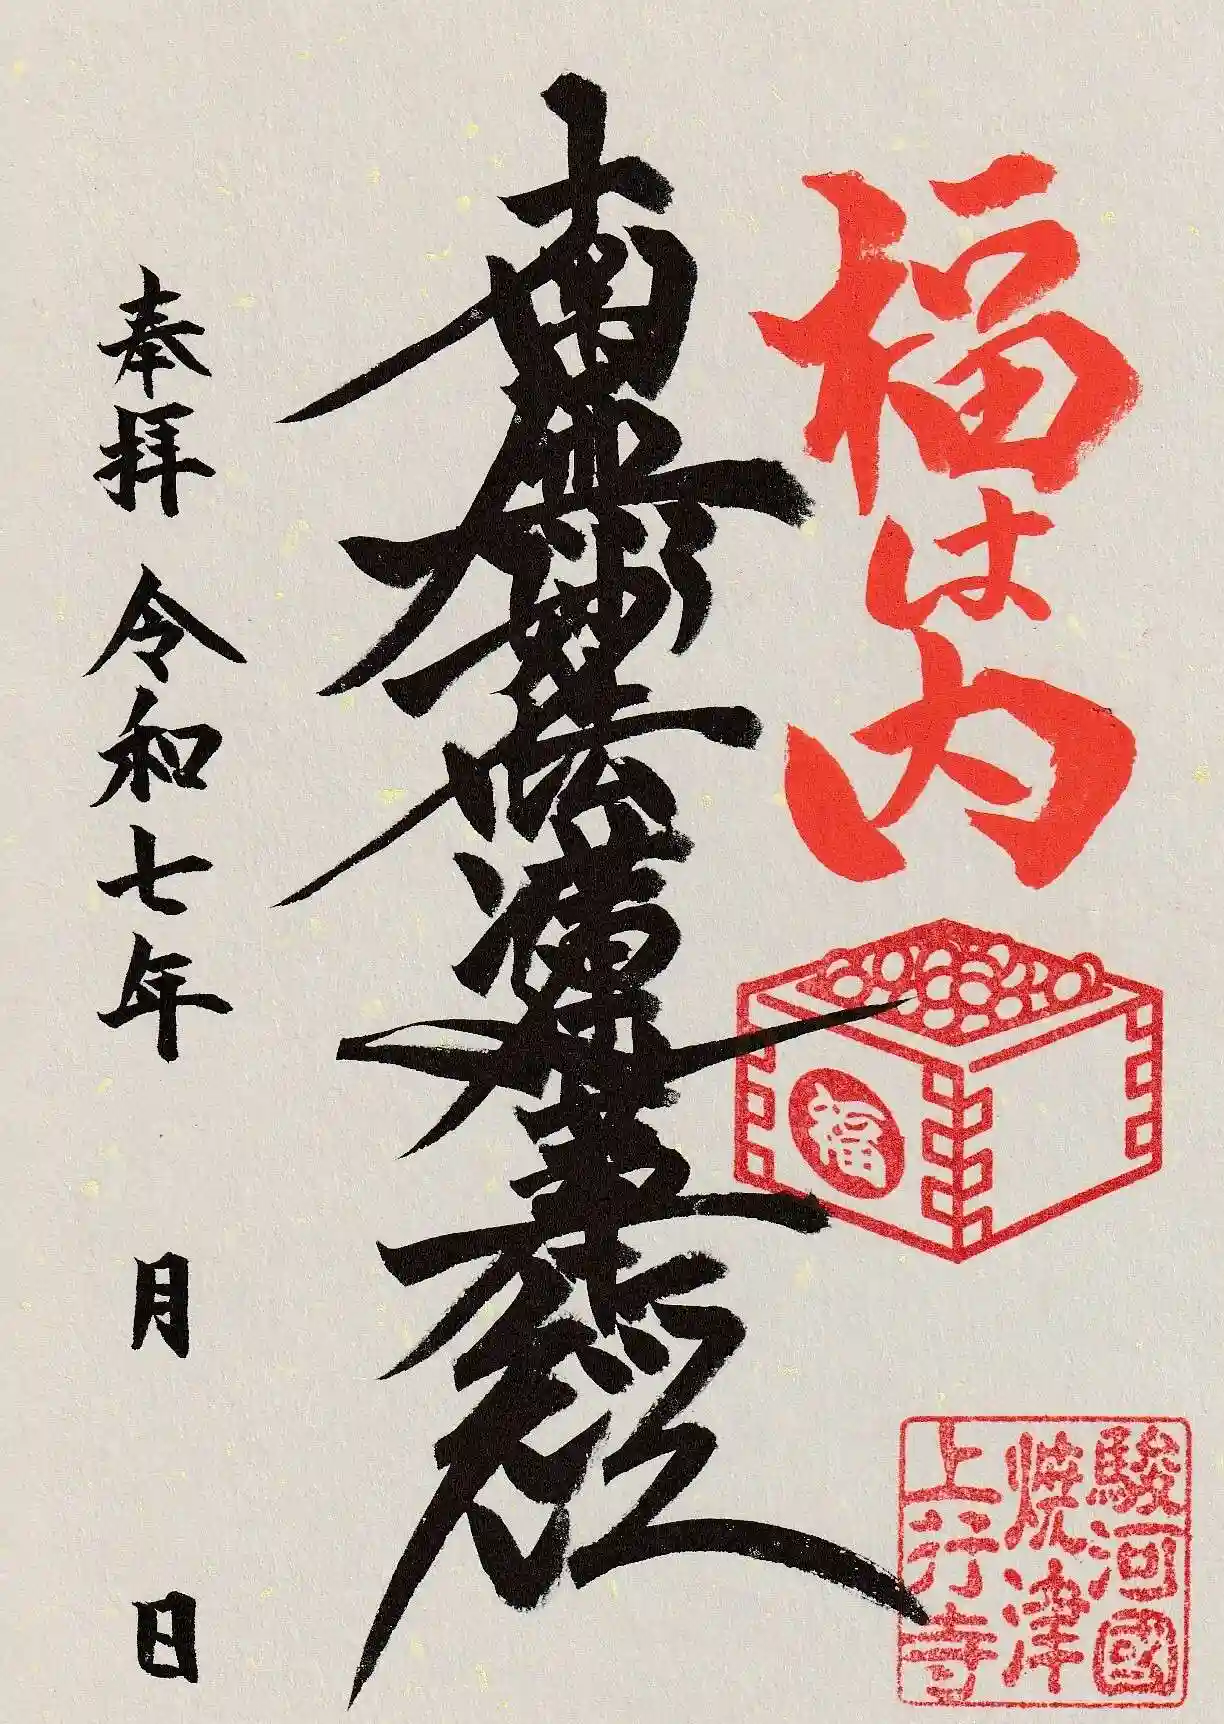 福は内
福
駿河國
焼津
上行寺
南無妙法蓮華経
奉拝 令和七年 月 日